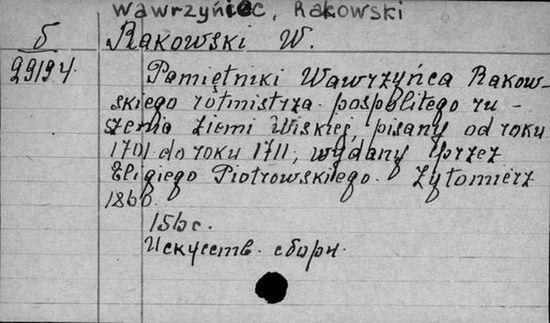 Wawrzyniec, Rakowski
б Rakowski W.
29194. Pamiętniki Wawrzyńca Rakow-
skiego rotmistrza pospolitego ru-
szenia ziemi Wiskiej, pisany od roku
1701 do roku 1711, wydany przez
Eligiego Piotrowskiego. Żytomierz
1860.
156 с.
Искусств. сборн.